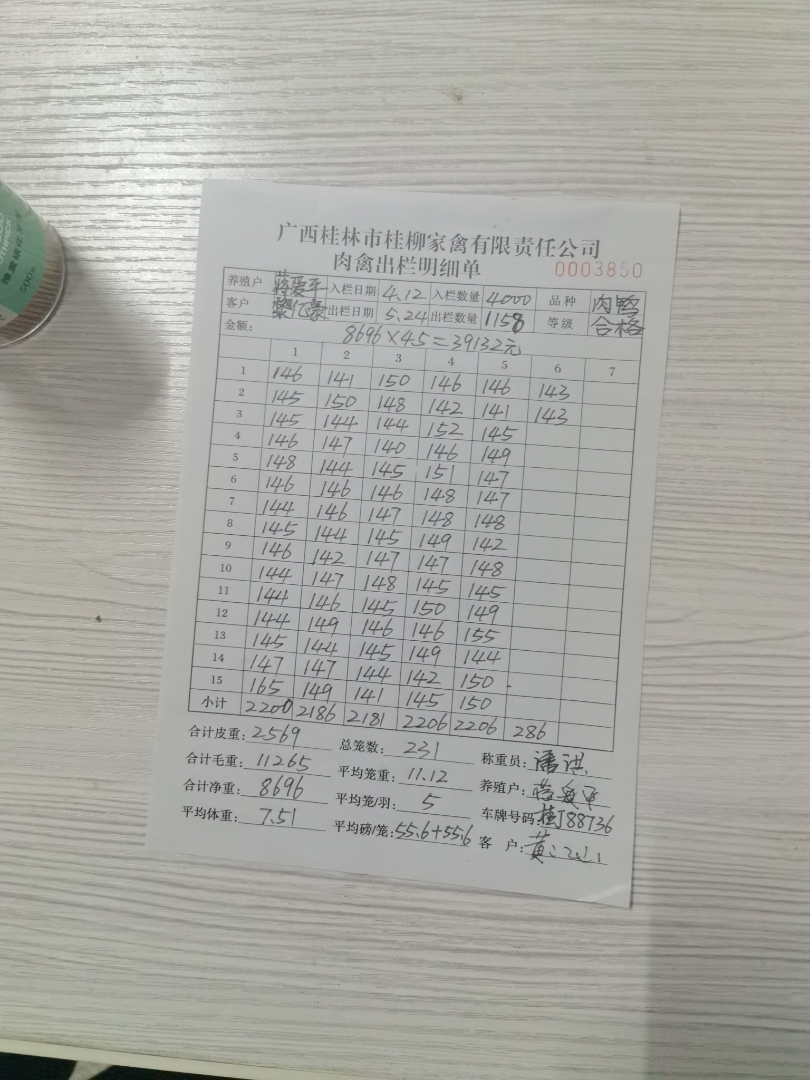 广西桂林市桂柳家禽有限责任公司
肉禽出栏明细单 0003850
养殖户 蒋爱平 入栏日期 4.12 入栏数量 4000 品种 肉鸭
客户 黎亿豪 出栏日期 5.24 出栏数量 1158 等级 合格
金额: 8696×4.5=39132元
1 2 3 4 5 6 7
1 146 141 150 146 146 143
2 145 150 148 142 141 143
3 145 144 144 152 145
4 146 147 140 146 149
5 148 144 145 151 147
6 146 146 146 148 147
7 144 146 147 148 148
8 145 144 145 149 142
9 146 142 147 147 148
10 144 147 148 145 145
11 144 146 145 150 149
12 144 149 146 146 155
13 145 144 145 149 144
14 147 147 144 142 150
15 165 149 141 145 150
小计 2200 2186 2181 2206 2206 286
合计皮重: 2569 总笼数: 231 称重员: 潘琪
合计毛重: 11265 平均笼重: 11.12 养殖户: 蒋爱平
合计净重: 8696 平均笼/羽: 5 车牌号码: 桂J88736
平均体重: 7.51 平均磅/笼: 55.6+55.6 客 户: 黄
500g